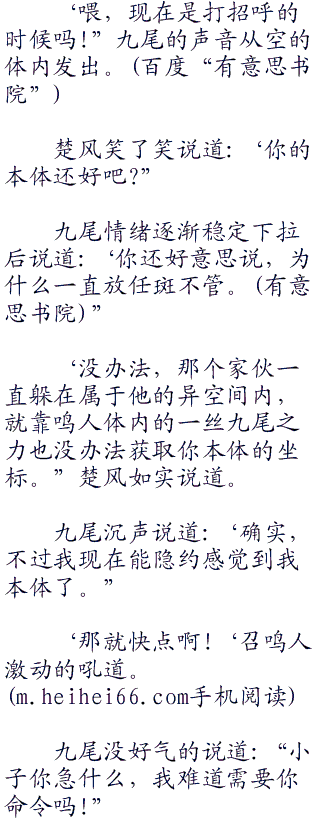 ‘喂，现在是打招呼的
时候吗！”九尾的声音从空的
体内发出。(百度“有意思书
院”)
楚风笑了笑说道：‘你的
本体还好吧？”
九尾情绪逐渐稳定下拉
后说道：‘你还好意思说，为
什么一直放任斑不管。(有意
思书院)”
‘没办法，那个家伙一
直躲在属于他的异空间内，
就靠鸣人体内的一丝九尾之
力也没办法获取你本体的坐
标。”楚风如实说道。
九尾沉声说道：‘确实，
不过我现在能隐约感觉到我
本体了。”
‘那就快点啊！‘召鸣人
激动的吼道。
(m.heihei66.com手机阅读)
九尾没好气的说道：“小
子你急什么，我难道需要你
命令吗！”